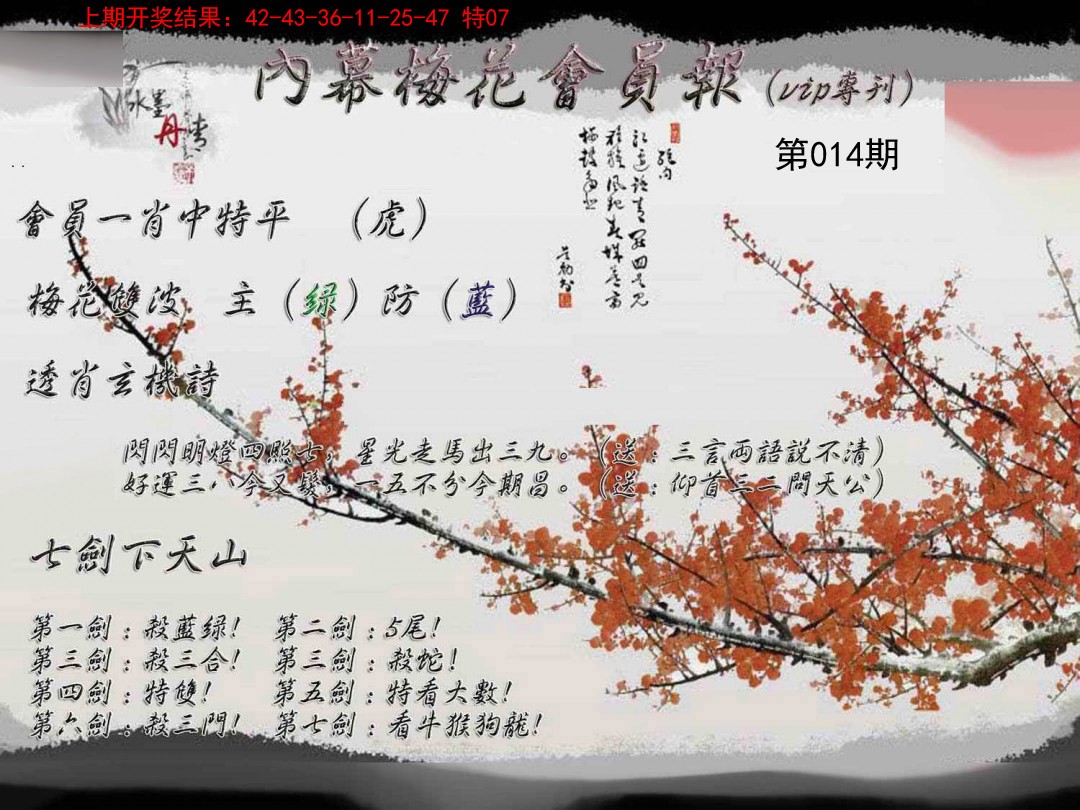 上期开奖结果：42-43-36-11-25-47 特07
內幕梅花會員報（vip專刊）
水墨
丹情
第014期
會員一肖中特平 （虎）
梅花雙波 主（绿）防（藍）
透肖玄機詩
閃閃明燈四照士，星光走馬出三九。（送：三言両語説不清）
好運三八今又發，一五不兮今期昌。（送：仰首三二問天公）
七劍下天山
第一劍：殺藍绿！ 第二劍：5尾！
第三劍：殺三合！ 第三劍：殺蛇！
第四劍：特雙！ 第五劍：特看大數！
第六劍：殺三門！ 第七劍：看牛猴狗龍！